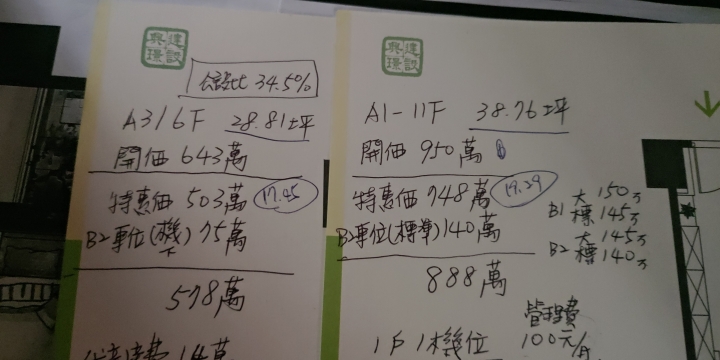 建設
興璟
公設比 34.5%
A3/6F 28.81坪
開価 643萬
特惠価 503萬 17.45
B2車位(機)75萬
下
578萬
建設
興璟
A1-11F 38.76坪
開価 950萬
特惠価 748萬 19.29
B2車位(標準)140萬
888萬
B1 大 150万
標 145万
B2 大 145万
標 140万
管理費
100元/
1戶1機位